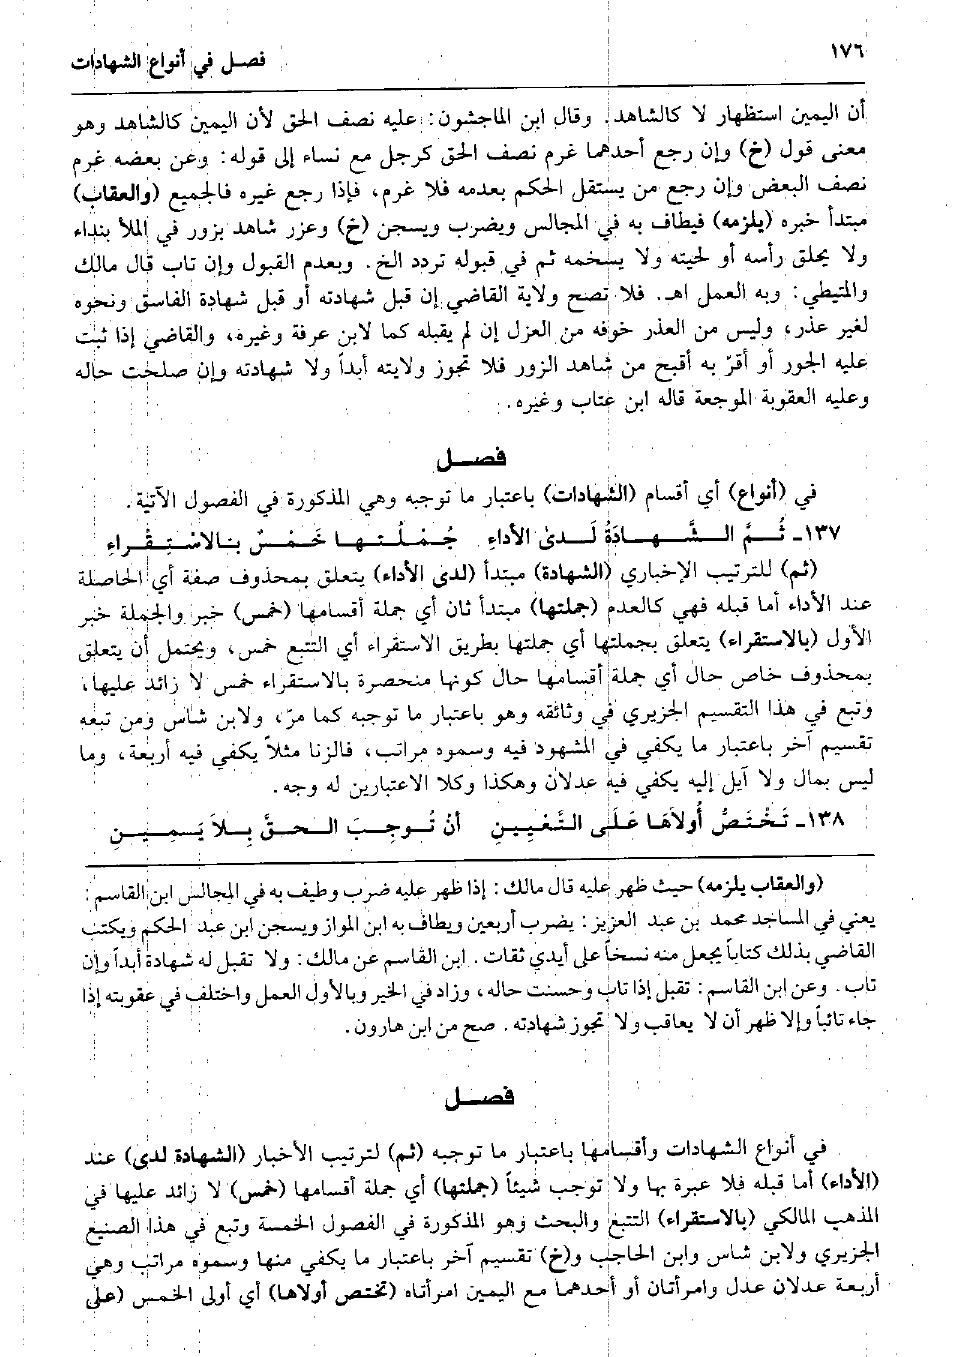 ١٧٦
فصل في أنواع الشهادات
أن اليمين استظهار لا كالشاهد. وقال ابن الماجشون: عليه نصف الحق لأن اليمين كالشاهد وهو
معنى قول (خ) وإن رجع أحدهما غرم نصف الحق كرجل مع نساء إلى قوله: وعن بعضه غرم
نصف البعض وإن رجع من يستقل الحكم بعدمه فلا غرم، فإذا رجع غيره فالجميع (والعقاب)
مبتدأ خبره (يلزمه) فيطاف به في المجالس ويضرب ويسجن (خ) وعزر شاهد بزور في الملأ بنداء
ولا يحلق رأسه أو لحيته ولا يسخمه ثم في قبوله تردد الخ. وبعدم القبول وإن تاب قال مالك
والمتيطي: وبه العمل اهـ. فلا تصح ولاية القاضي إن قبل شهادته أو قبل شهادة الفاسق ونحوه
لغير عذر، وليس من العذر خوفه من العزل إن لم يقبله كما لابن عرفة وغيره، والقاضي إذا ثبت
عليه الجور أو أقرّ به أقبح من شاهد الزور فلا تجوز ولايته أبداً ولا شهادته وإن صلحت حاله
وعليه العقوبة الموجعة قاله ابن عتاب وغيره.
فصـــل
في (أنواع) أي أقسام (الشهادات) باعتبار ما توجبه وهي المذكورة في الفصول الآتية.
١٣٧ـ ثُــمَّ الــشَّــهــادَةُ لَــدىٰ الأداءِ جُـمْـلُـتـهـا خَـمْـسٌ بـالاسْـتِـقْـراءِ
(ثم) للترتيب الإخباري (الشهادة) مبتدأ (لدى الأداء) يتعلق بمحذوف صفة أي الحاصلة
عند الأداء أما قبله فهي كالعدم (جملتها) مبتدأ ثان أي جملة أقسامها (خمس) خبر والجملة خبر
الأول (بالاستقراء) يتعلق بجملتها أي جملتها بطريق الاستقراء أي التتبع خمس، ويحتمل أن يتعلق
بمحذوف خاص حال أي جملة أقسامها حال كونها منحصرة بالاستقراء خمس لا زائد عليها،
وتبع في هذا التقسيم الجزيري في وثائقه وهو باعتبار ما توجبه كما مرّ، ولابن شاس ومن تبعه
تقسيم آخر باعتبار ما يكفي في المشهود فيه وسموه مراتب، فالزنا مثلاً يكفي فيه أربعة، وما
ليس بمال ولا آيل إليه يكفي فيه عدلان وهكذا وكلا الاعتبارين له وجه.
١٣٨ـ تَـخْـتَـصُّ أُولاَهَـا عَـلَـى الـتَّـعْـيِـيـنِ أنْ تُـوجِـبَ الـحـقَّ بِـلاَ يَـمِـيـنِ
(والعقاب يلزمه) حيث ظهر عليه قال مالك: إذا ظهر عليه ضرب وطيف به في المجالس ابن القاسم:
يعني في المساجد محمد بن عبد العزيز: يضرب أربعين ويطاف به ابن المواز ويسجن ابن عبد الحكم ويكتب
القاضي بذلك كتاباً يجعل منه نسخاً على أيدي ثقات. ابن القاسم عن مالك: ولا تقبل له شهادة أبداً وإن
تاب. وعن ابن القاسم: تقبل إذا تاب وحسنت حاله، وزاد في الخير وبالأول العمل واختلف في عقوبته إذا
جاء تائباً وإلا ظهر أن لا يعاقب ولا تجوز شهادته. صح من ابن هارون.
فصـــل
في أنواع الشهادات وأقسامها باعتبار ما توجبه (ثم) لترتيب الأخبار (الشهادة لدى) عند
(الأداء) أما قبله فلا عبرة بها ولا توجب شيئاً (جملتها) أي جملة أقسامها (خمس) لا زائد عليها في
المذهب المالكي (بالاستقراء) التتبع والبحث وهو المذكورة في الفصول الخمسة وتبع في هذا الصنيع
الجزيري ولابن شاس وابن الحاجب و(خ) تقسيم آخر باعتبار ما يكفي منها وسموه مراتب وهي
أربعة عدلان عدل وامرأتان أو أحدهما مع اليمين امرأتاه (تختص أولاها) أي أولى الخمس (على